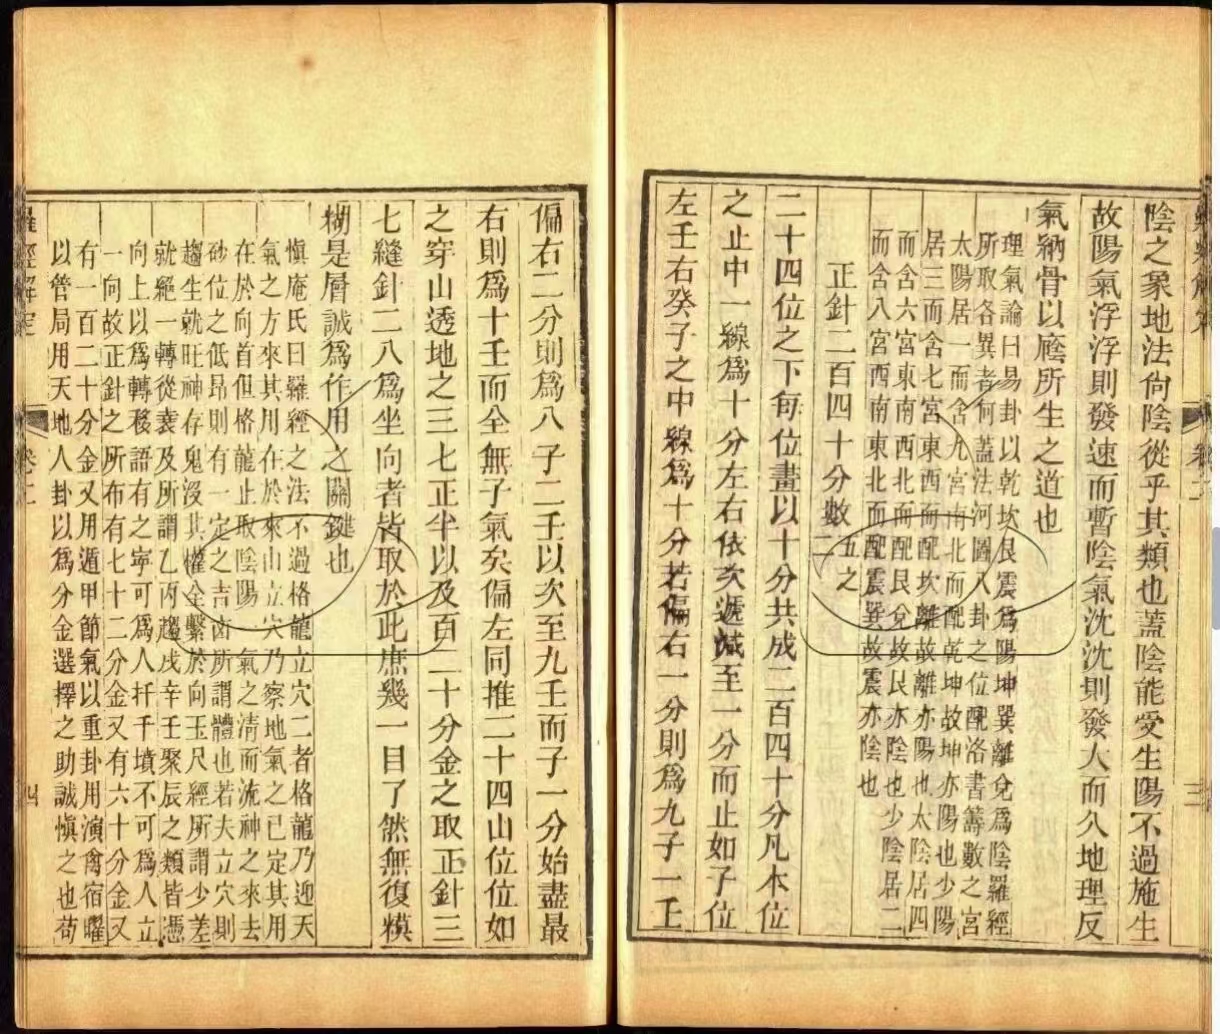 陰之象地法尙陰從乎其類也蓋陰能受生陽不過施生
故陽氣浮浮則發速而暫陰氣沈沈則發大而久地理反
氣納骨以廕所生之道也
理氣論曰易卦以乾坎艮震爲陽坤巽離兌爲陰羅經
所取各異者何蓋法河圖八卦之位配洛書籌數之宮
太陽居一而含九宮南北而配乾坤故坤亦陽也少陽
居三而含七宮東西而配坎離故離亦陽也太陰居四
而含六宮東南西北而配艮兌故艮亦陰也少陰居二
而含八宮西南東北而配震巽故震亦陰也
正針二百四十分數二五之
二十四位之下每位畫以十分共成二百四十分凡本位
之止中一線爲十分左右依次遞減至一分而止如子位
左壬右癸子之中線爲十分若偏右一分則爲九子一壬
偏右二分則爲八子二壬以次至九壬而子一分始盡最
右則爲十壬而全無子氣矣偏左同推二十四山位位如
之穿山透地之三七正半以及百二十分金之取正針三
七縫針二八爲坐向者皆取於此庶幾一目了然無復模
糊是層誠爲作用之關鍵也
愼庵氏曰羅經之法不過格龍立穴二者格龍乃迎天
氣之方來其用在於來山立穴乃察地氣之已定其用
在於向首但格龍止取陰陽一氣之清而流神之來去
砂位之低昂則有一定之吉凶所謂體也若夫立穴則
趨生就旺神存鬼沒其權全繫於向玉尺經所謂少差
就絕一轉從衰及所謂乙丙趨戌辛壬聚辰之類皆憑
向上以爲轉移語有之寧可爲人扦千墳不可爲人立
一向故正針之所布有七十二分金又有六十分金又
有一百二十分金又用遁甲節氣以重卦用演禽宿曜
以管局用天地人卦以爲分金選擇之助誠愼之也苟
羅經解定
卷二
四